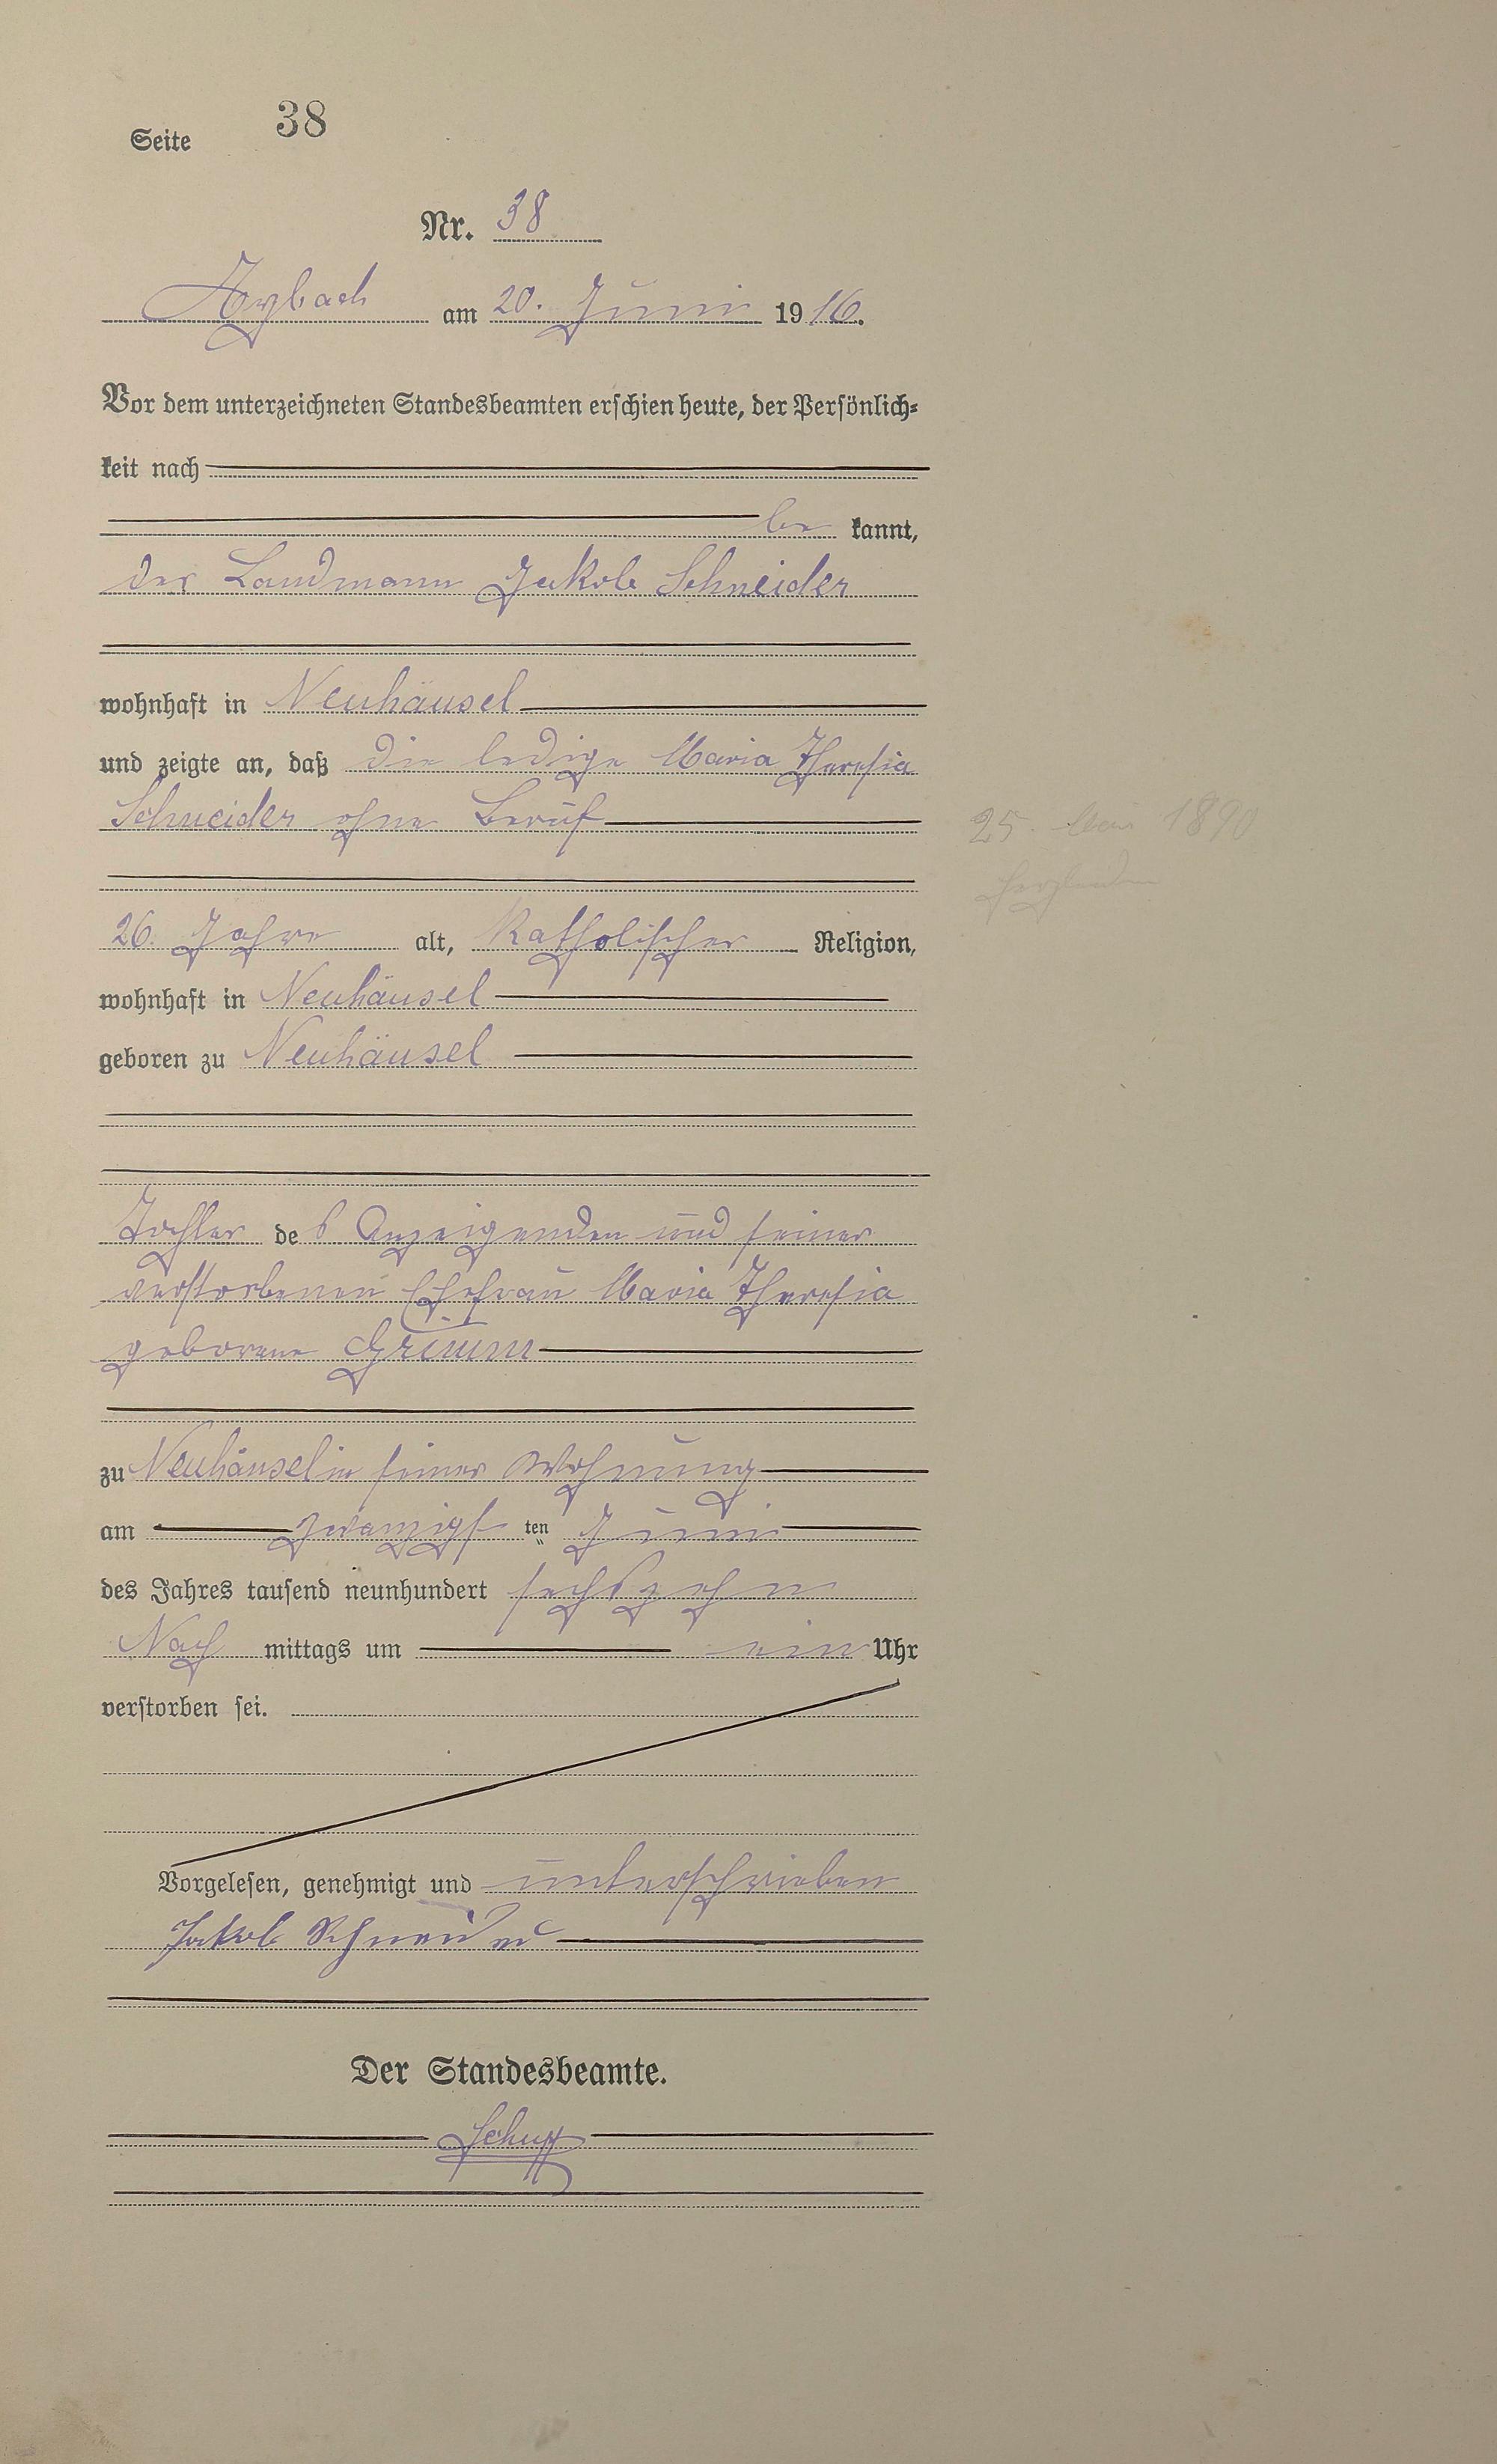 Seite 38
Nr. 38
Arzbach am 20. Juni 1916.
Vor dem unterzeichneten Standesbeamten erschien heute, der Persönlich-
keit nach
be kannt,
der Landmann Jakob Schneider
wohnhaft in Neuhäusel
und zeigte an, daß die ledige Maria Theresia
Schneider ohne Beruf
25. Mai 1890
26 Jahre alt, katholischer Religion,
wohnhaft in Neuhäusel
geboren zu Neuhäusel
Tochter des Anzeigenden und seiner
verstorbenen Ehefrau Maria Theresia
geborene Grimm
zu Neuhäusel in seiner Wohnung
am zwanzigsten Juni
des Jahres tausend neunhundert sechszehn
Nach mittags um ein Uhr
verstorben sei.
Vorgelesen, genehmigt und unterschrieben
Jakob Schneider
Der Standesbeamte.
Schupp